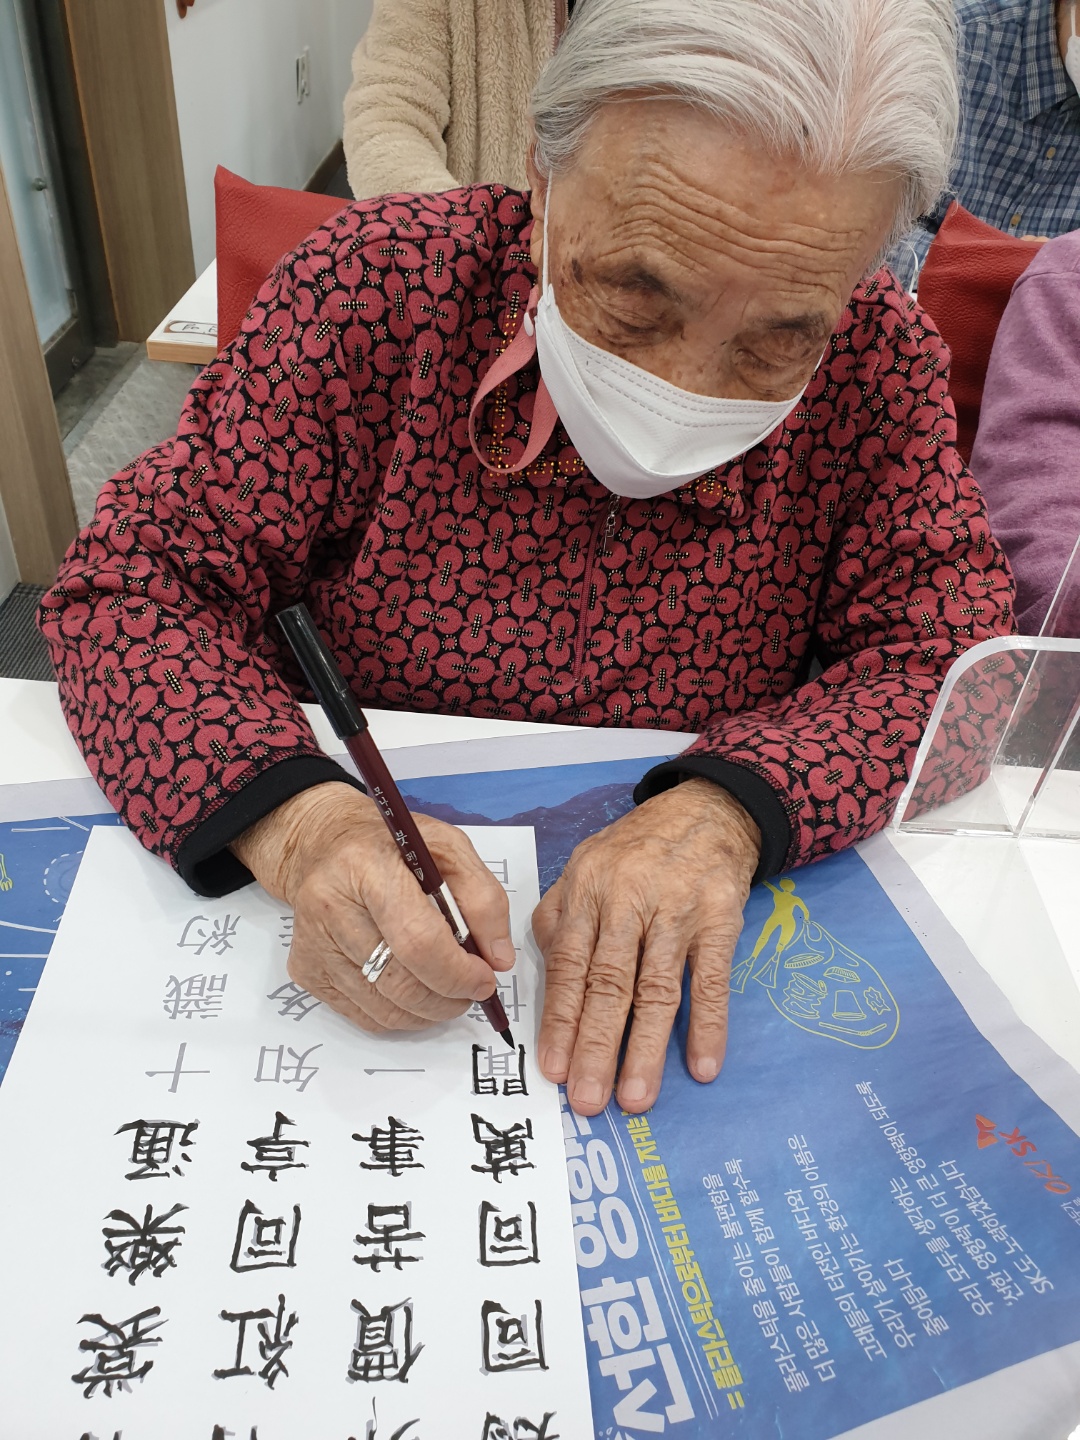 同價紅裳
同苦同樂
萬事亨通
聞一知十
多識
約
모나미 붓펜
선한영향
= 플라스틱으로부터 바다를 지키는
플라스틱을 줄이는 불편함을
더 많은 사람들이 함께 할수록
고래들의 터전인 바다와
우리가 살아가
우리 모두를 생각한
선한 영향력이 더 큰 영향력이 되도록
SK도 노력하겠습니다
OK! SK